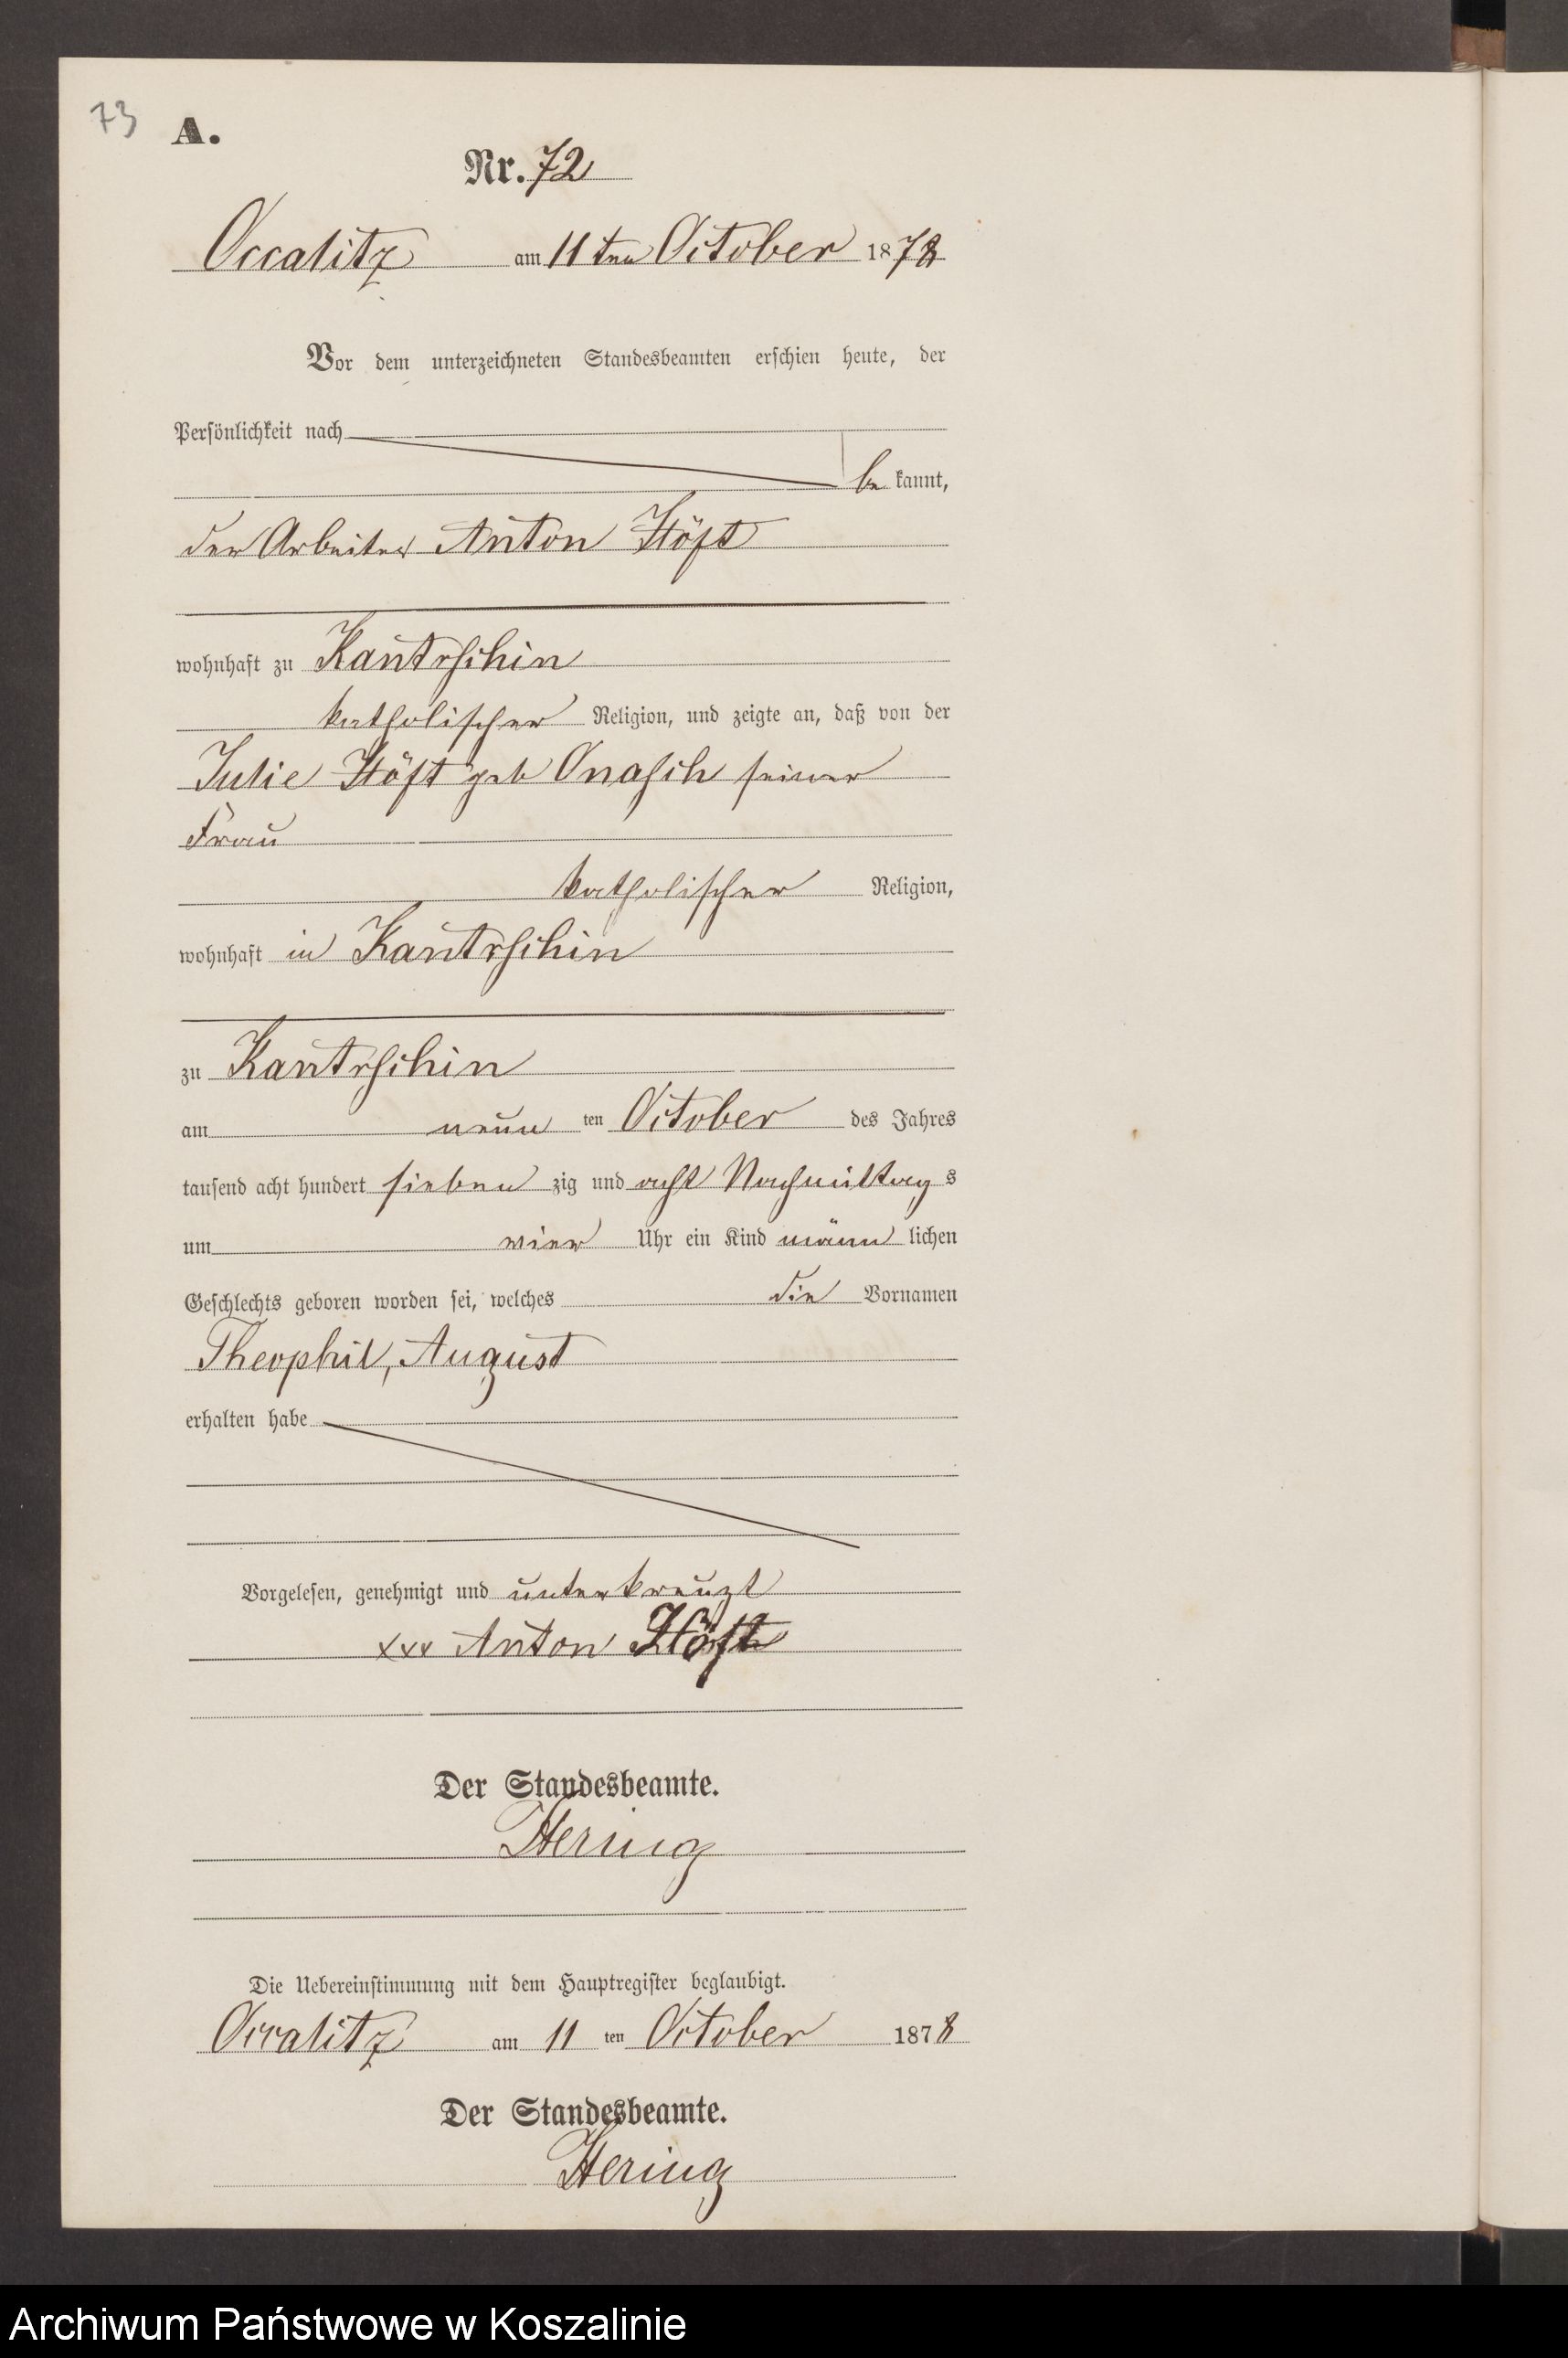 73
A.
Nr. 72
Occalitz am 11ten October 1878
Vor dem unterzeichneten Standesbeamten erschien heute, der
Persönlichkeit nach
be kannt,
der Arbeiter Anton Höft
wohnhaft zu Kantrschin
katholischer Religion, und zeigte an, daß von der
Julie Höft geb Onasch seiner
Frau
katholischer Religion,
wohnhaft in Kantrschin
zu Kantrschin
am neun ten October des Jahres
tausend acht hundert sieben zig und acht Nachmittag s
um vier Uhr ein Kind männ lichen
Geschlechts geboren worden sei, welches die Vornamen
Theophil, August
erhalten habe
Vorgelesen, genehmigt und unterkreuzt
xxx Anton Höft
Der Standesbeamte.
Hering
Die Uebereinstimmung mit dem Hauptregister beglaubigt.
Occalitz am 11 ten October 1878
Der Standesbeamte.
Hering
Archiwum Państwowe w Koszalinie